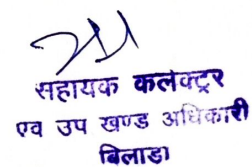 सहायक कलेक्ट्रर
एव उप खण्ड अधिकारी
बिलाडा